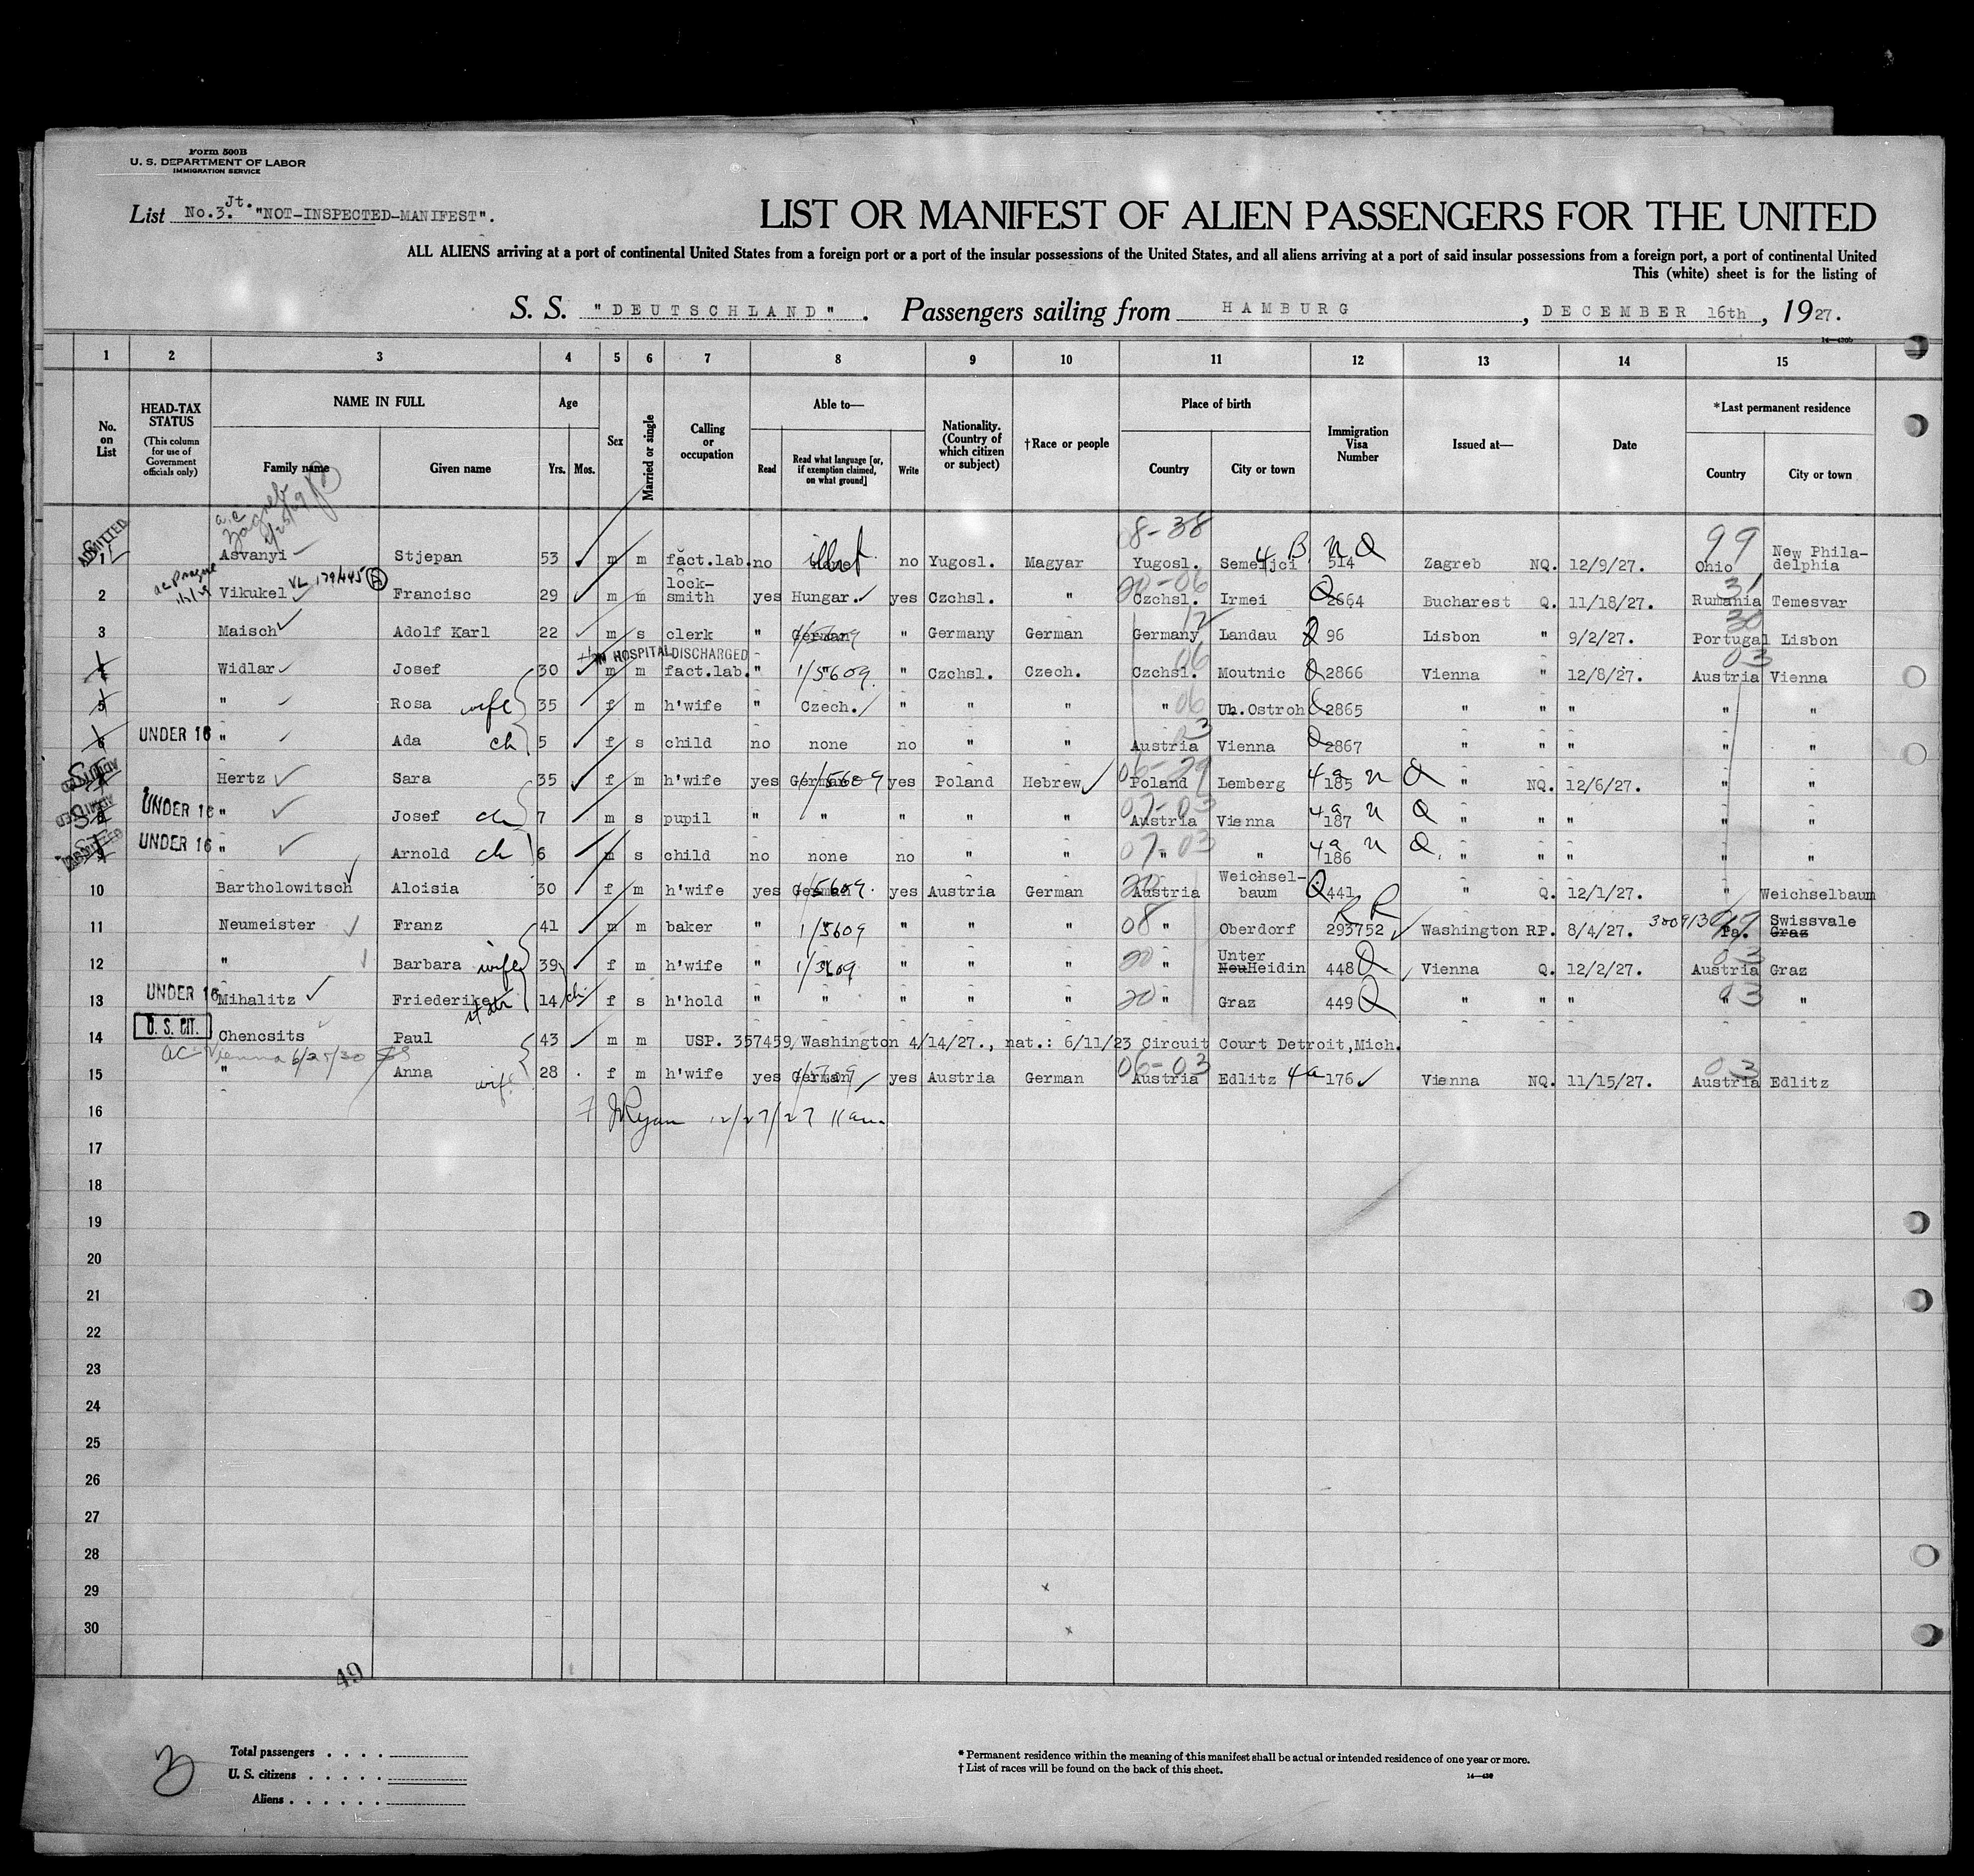 Form 500B
U. S. DEPARTMENT OF LABOR
IMMIGRATION SERVICE
List No.3. Jt. "NOT-INSPECTED-MANIFEST".
LIST OR MANIFEST OF ALIEN PASSENGERS FOR THE UNITED
ALL ALIENS arriving at a port of continental United States from a foreign port or a port of the insular possessions of the United States, and all aliens arriving at a port of said insular possessions from a foreign port, a port of continental United
This (white) sheet is for the listing of
S. S. "DEUTSCHLAND". Passengers sailing from HAMBURG, DECEMBER 16th, 1927.
14—430b
1 2 3 4 5 6 7 8 9 10 11 12 13 14 15
No. on List
HEAD-TAX STATUS (This column for use of Government officials only)
NAME IN FULL Family name Given name
Age Yrs. Mos.
Sex
Married or single
Calling or occupation
Able to— Read Read what language [or, if exemption claimed, on what ground] Write
Nationality. (Country of which citizen or subject)
†Race or people
Place of birth Country City or town
Immigration Visa Number
Issued at—
Date
*Last permanent residence Country City or town
a.c. Zagreb
08-38 99
ADMITTED 1 Asvanyi Stjepan 53 m m fact.lab. no illet no Yugosl. Magyar Yugosl. Semeljci 4 B n Q 514 Zagreb NQ. 12/9/27. Ohio New Phila-delphia
ac Prague
20-06 31
2 Vikukel VL 179445 Francisc 29 m m lock-smith yes Hungar. yes Czchsl. " Czchsl. Irmei Q 2664 Bucharest Q. 11/18/27. Rumania Temesvar
12 30
3 Maisch Adolf Karl 22 m s clerk " German " Germany German Germany Landau Q 96 Lisbon " 9/2/27. Portugal Lisbon
IN HOSPITAL DISCHARGED
06 03
4 Widlar Josef 30 m m fact.lab. " 1/5609. " Czchsl. Czech. Czchsl. Moutnic Q 2866 Vienna " 12/8/27. Austria Vienna
5 " Rosa wife 35 f m h'wife " Czech. " " " " 06 Uh.Ostroh Q 2865 " " " " "
6 UNDER 16 " Ada ch 5 f s child no none no " " Austria 03 Vienna Q 2867 " " " " "
7 ADMITTED Hertz Sara 35 f m h'wife yes German 1/5609 yes Poland Hebrew Poland 06-29 Lemberg 4a 185 n Q " NQ. 12/6/27. " "
8 ADMITTED UNDER 16 " Josef ch 7 m s pupil " " " " " Austria 07-03 Vienna 4a 187 n Q " " " " "
9 ADMITTED UNDER 16 " Arnold ch 6 m s child no none no " " " 07-03 " 4a 186 n Q " " " " "
10 Bartholowitsch Aloisia 30 f m h'wife yes German 1/5609. yes Austria German Austria 20 Weichsel-baum Q 441 " Q. 12/1/27. " Weichselbaum
11 Neumeister Franz 41 m m baker " 1/5609 " " " 08 " Oberdorf R R 293752 Washington RP. 8/4/27. 99 Pa. Swissvale Graz
12 " Barbara wife 39 f m h'wife " 1/5609 " " " 20 " Unter Neu Heidin 448 Q Vienna Q. 12/2/27. 03 Austria Graz
13 UNDER 16 Mihalitz Friederike st dtr 14 ch f s h'hold " " " " " 20 " Graz 449 Q " " " 03 " "
14 U. S. CIT. Chencsits Paul 43 m m USP. 357459, Washington 4/14/27., nat.: 6/11/23 Circuit Court Detroit, Mich.
ac Vienna 6/25/30
15 " Anna wife 28 f m h'wife yes German yes Austria German Austria 06-03 Edlitz 4a 176 Vienna NQ. 11/15/27. 03 Austria Edlitz
16 JRyan 12/27/27 11am.
17
18
19
20
21
22
23
24
25
26
27
28
29
30
49
3
Total passengers . . . .
U. S. citizens . . . . .
Aliens . . . . . .
* Permanent residence within the meaning of this manifest shall be actual or intended residence of one year or more.
† List of races will be found on the back of this sheet.
14—430